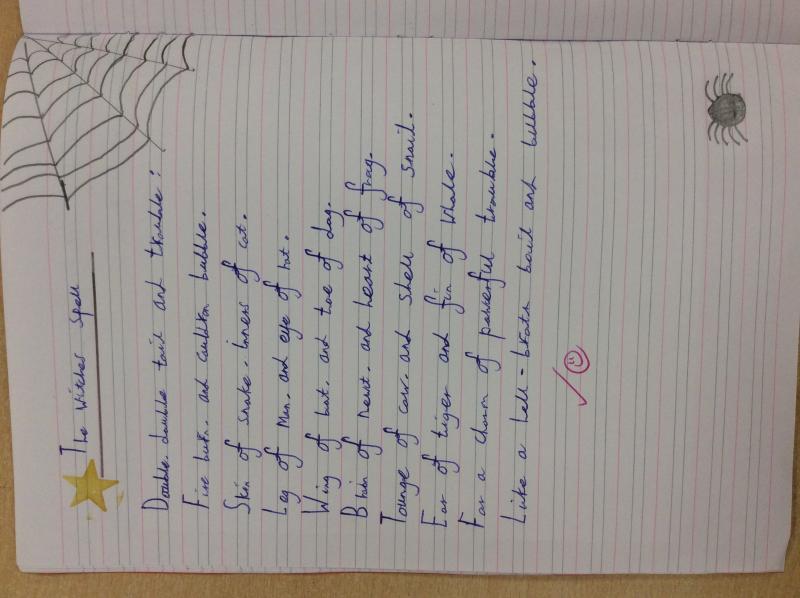 The Witches Spell
Double, double toil and trouble:
Fire burn, and cauldron bubble.
Skin of snake, Inners of cat.
Leg of Man, and eye of hat.
Wing of bat, and toe of dog.
Brain of newt, and heart of frog.
Tounge of cow, and shell of snail.
Ear of tiger and fin of whale.
For a charm of powerful trouble.
Like a hell-broth boil and bubble.